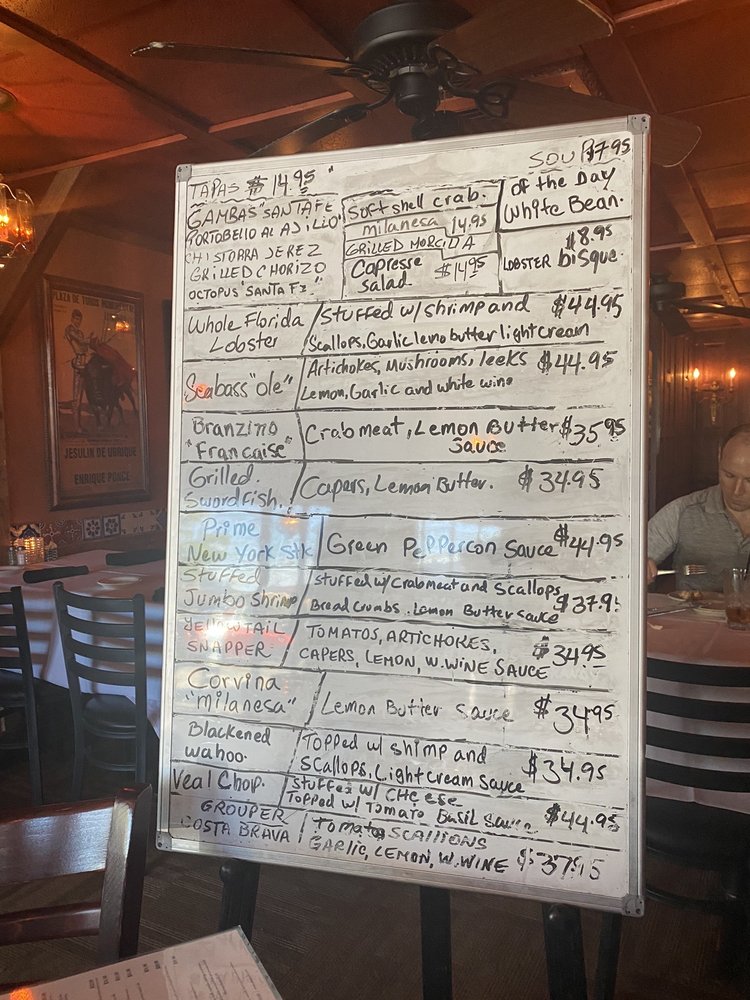 TAPAS $14.95
GAMBAS "SANTA FE
PORTOBELLO AL AJILLO"
CHISTORRA JEREZ
GRILLED CHORIZO
OCTOPUS "SANTA FE"
Soft shell crab.
milanesa 14.95
GRILLED MORCILLA
Capresse $14.95
salad
SOUP $7.95
of the Day
White Bean.
$8.95
LOBSTER bisque
Whole Florida
Lobster
Stuffed w/ shrimp and $44.95
Scallops, Garlic lemo butter light cream
Seabass "ole"
Artichokes, Mushrooms, leeks $44.95
Lemon, Garlic and white wine
Branzino
"Francaise"
Crabmeat, Lemon Butter $35.95
Sauce
Grilled.
Swordfish.
Capers, Lemon Butter. $34.95
Prime
New York Stk
Green Peppercon Sauce $44.95
Stuffed
Jumbo Shrimp
Stuffed w/ Crabmeat and Scallops
Bread Crumbs. Lemon Butter sauce $37.95
YELLOWTAIL
SNAPPER
TOMATOS, ARTICHOKES,
CAPERS, LEMON, W. WINE SAUCE $34.95
Corvina
"milanesa"
Lemon Butter Sauce $34.95
Blackened
wahoo.
Topped w/ shimp and
Scallops, Light cream Sauce $34.95
Veal Chop.
Stuffed w/ CHeese
Topped w/ Tomato Basil Sauce $44.95
GROUPER
COSTA BRAVA
Tomato SCALLIONS
GARLIC, LEMON, W. WINE $37.95
PLAZA DE TOROS MONUMENTAL
JESULIN DE UBRIQUE
ENRIQUE PONCE